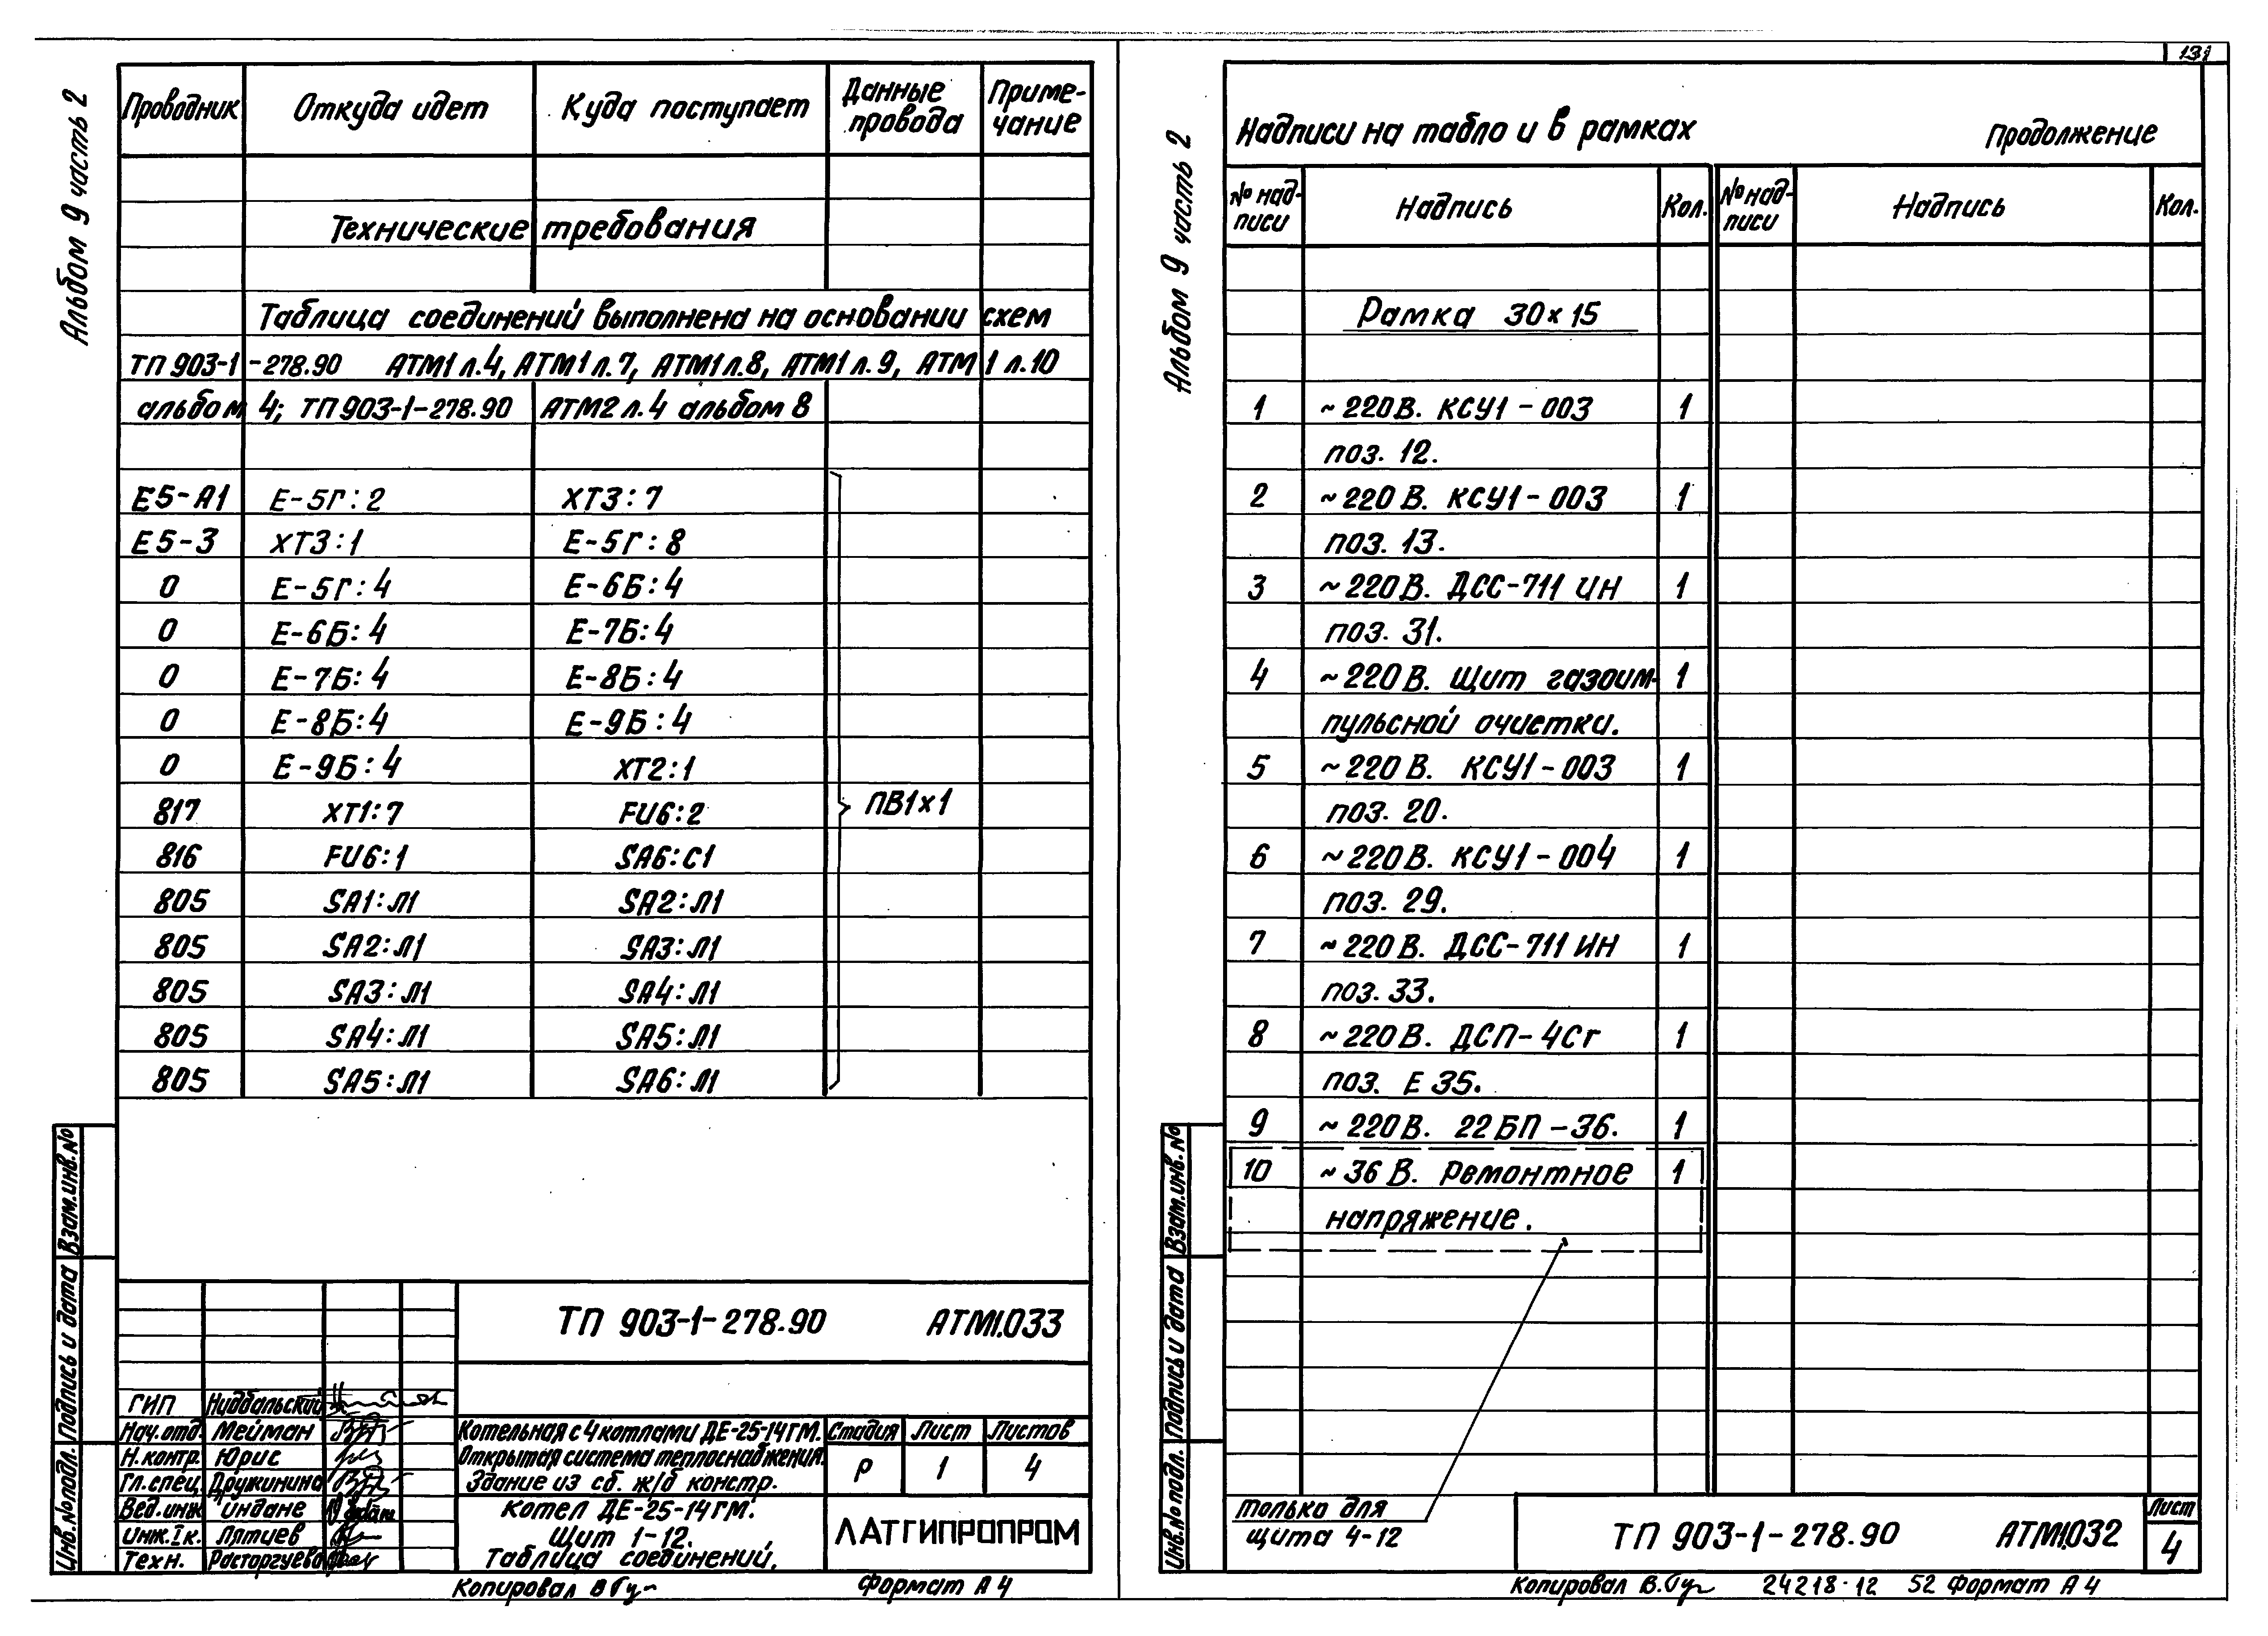 Альбом 9 часть 2
Проводник Откуда идет Куда поступает Данные провода Приме-чание
Технические требования
Таблица соединений выполнена на основании схем
ТП 903-1-278.90 АТМ1 л.4, АТМ1 л.7, АТМ1 л.8, АТМ1 л.9, АТМ1 л.10
альбом 4; ТП 903-1-278.90 АТМ2 л.4 альбом 8
Е5-А1 Е-5Г:2 ХТ3:7
Е5-3 ХТ3:1 Е-5Г:8
0 Е-5Г:4 Е-6Б:4
0 Е-6Б:4 Е-7Б:4
0 Е-7Б:4 Е-8Б:4
0 Е-8Б:4 Е-9Б:4
0 Е-9Б:4 ХТ2:1
817 ХТ1:7 FU6:2 ПВ1х1
816 FU6:1 SA6:С1
805 SA1:Л1 SA2:Л1
805 SA2:Л1 SA3:Л1
805 SA3:Л1 SA4:Л1
805 SA4:Л1 SA5:Л1
805 SA5:Л1 SA6:Л1
Взам.инв.№
Подпись и дата
Инв.№ подл.
ТП 903-1-278.90 АТМ1.033
ГИП Нидбальский
Нач.отд. Мейман
Н.контр. Юрис
Гл.спец. Дружинина
Вед.инж Индане
Инж.Iк. Лятиев
Техн. Расторгуева
Котельная с 4 котлами ДЕ-25-14ГМ.
Открытая система теплоснабжения.
Здание из сб. ж/б констр.
Стадия Лист Листов
Р 1 4
Котел ДЕ-25-14ГМ.
Щит 1-12.
Таблица соединений.
ЛАТГИПРОПРОМ
Копировал Формат А4
131
Альбом 9 часть 2
Надписи на табло и в рамках Продолжение
№ над-писи Надпись Кол. № над-писи Надпись Кол.
Рамка 30х15
1 ~220В. КСУ1-003 1
поз. 12.
2 ~220В. КСУ1-003 1
поз. 13.
3 ~220В. ДСС-711 ИН 1
поз. 31.
4 ~220В. Щит газоим- 1
пульсной очистки.
5 ~220В. КСУ1-003 1
поз. 20.
6 ~220В. КСУ1-004 1
поз. 29.
7 ~220В. ДСС-711 ИН 1
поз. 33.
8 ~220В. ДСП-4Сг 1
поз. Е 35.
9 ~220В. 22БП-36. 1
10 ~36В. Ремонтное 1
напряжение.
Взам.инв.№
Подпись и дата
Инв.№ подл.
только для
щита 4-12
ТП 903-1-278.90 АТМ1.032
Лист
4
Копировал 24218-12 52 Формат А4